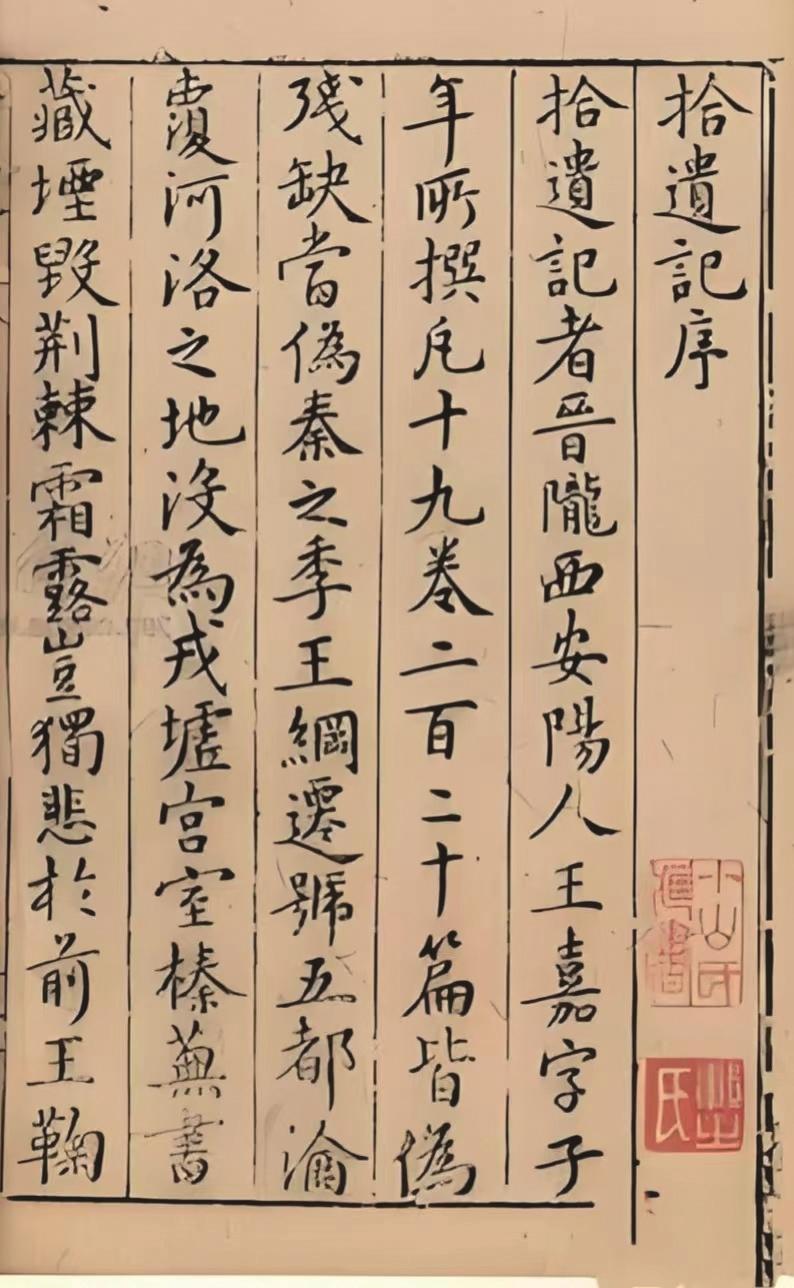 拾遺記序
拾遺記者晉隴西安陽人王嘉字子
年所撰凡十九卷二百二十篇皆偽
残缺當偽秦之季王綱遷號五都淪
覆河洛之地沒為戎墟宮室榛蕪書
藏堙毀荊棘霜露豈獨悲於前王鞠